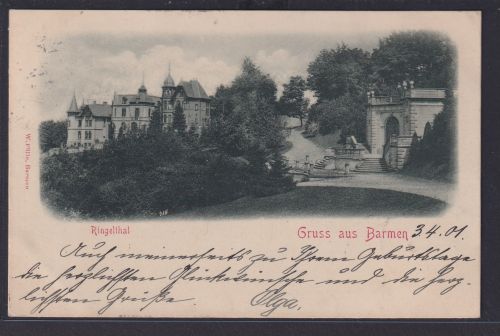 Ringelthal
Gruss aus Barmen
3.4.01.
Auch meinerseits zu Ihrem Geburtstage
die herzlichsten Glückwünsche und die herz-
lichsten Grüße.
Olga.